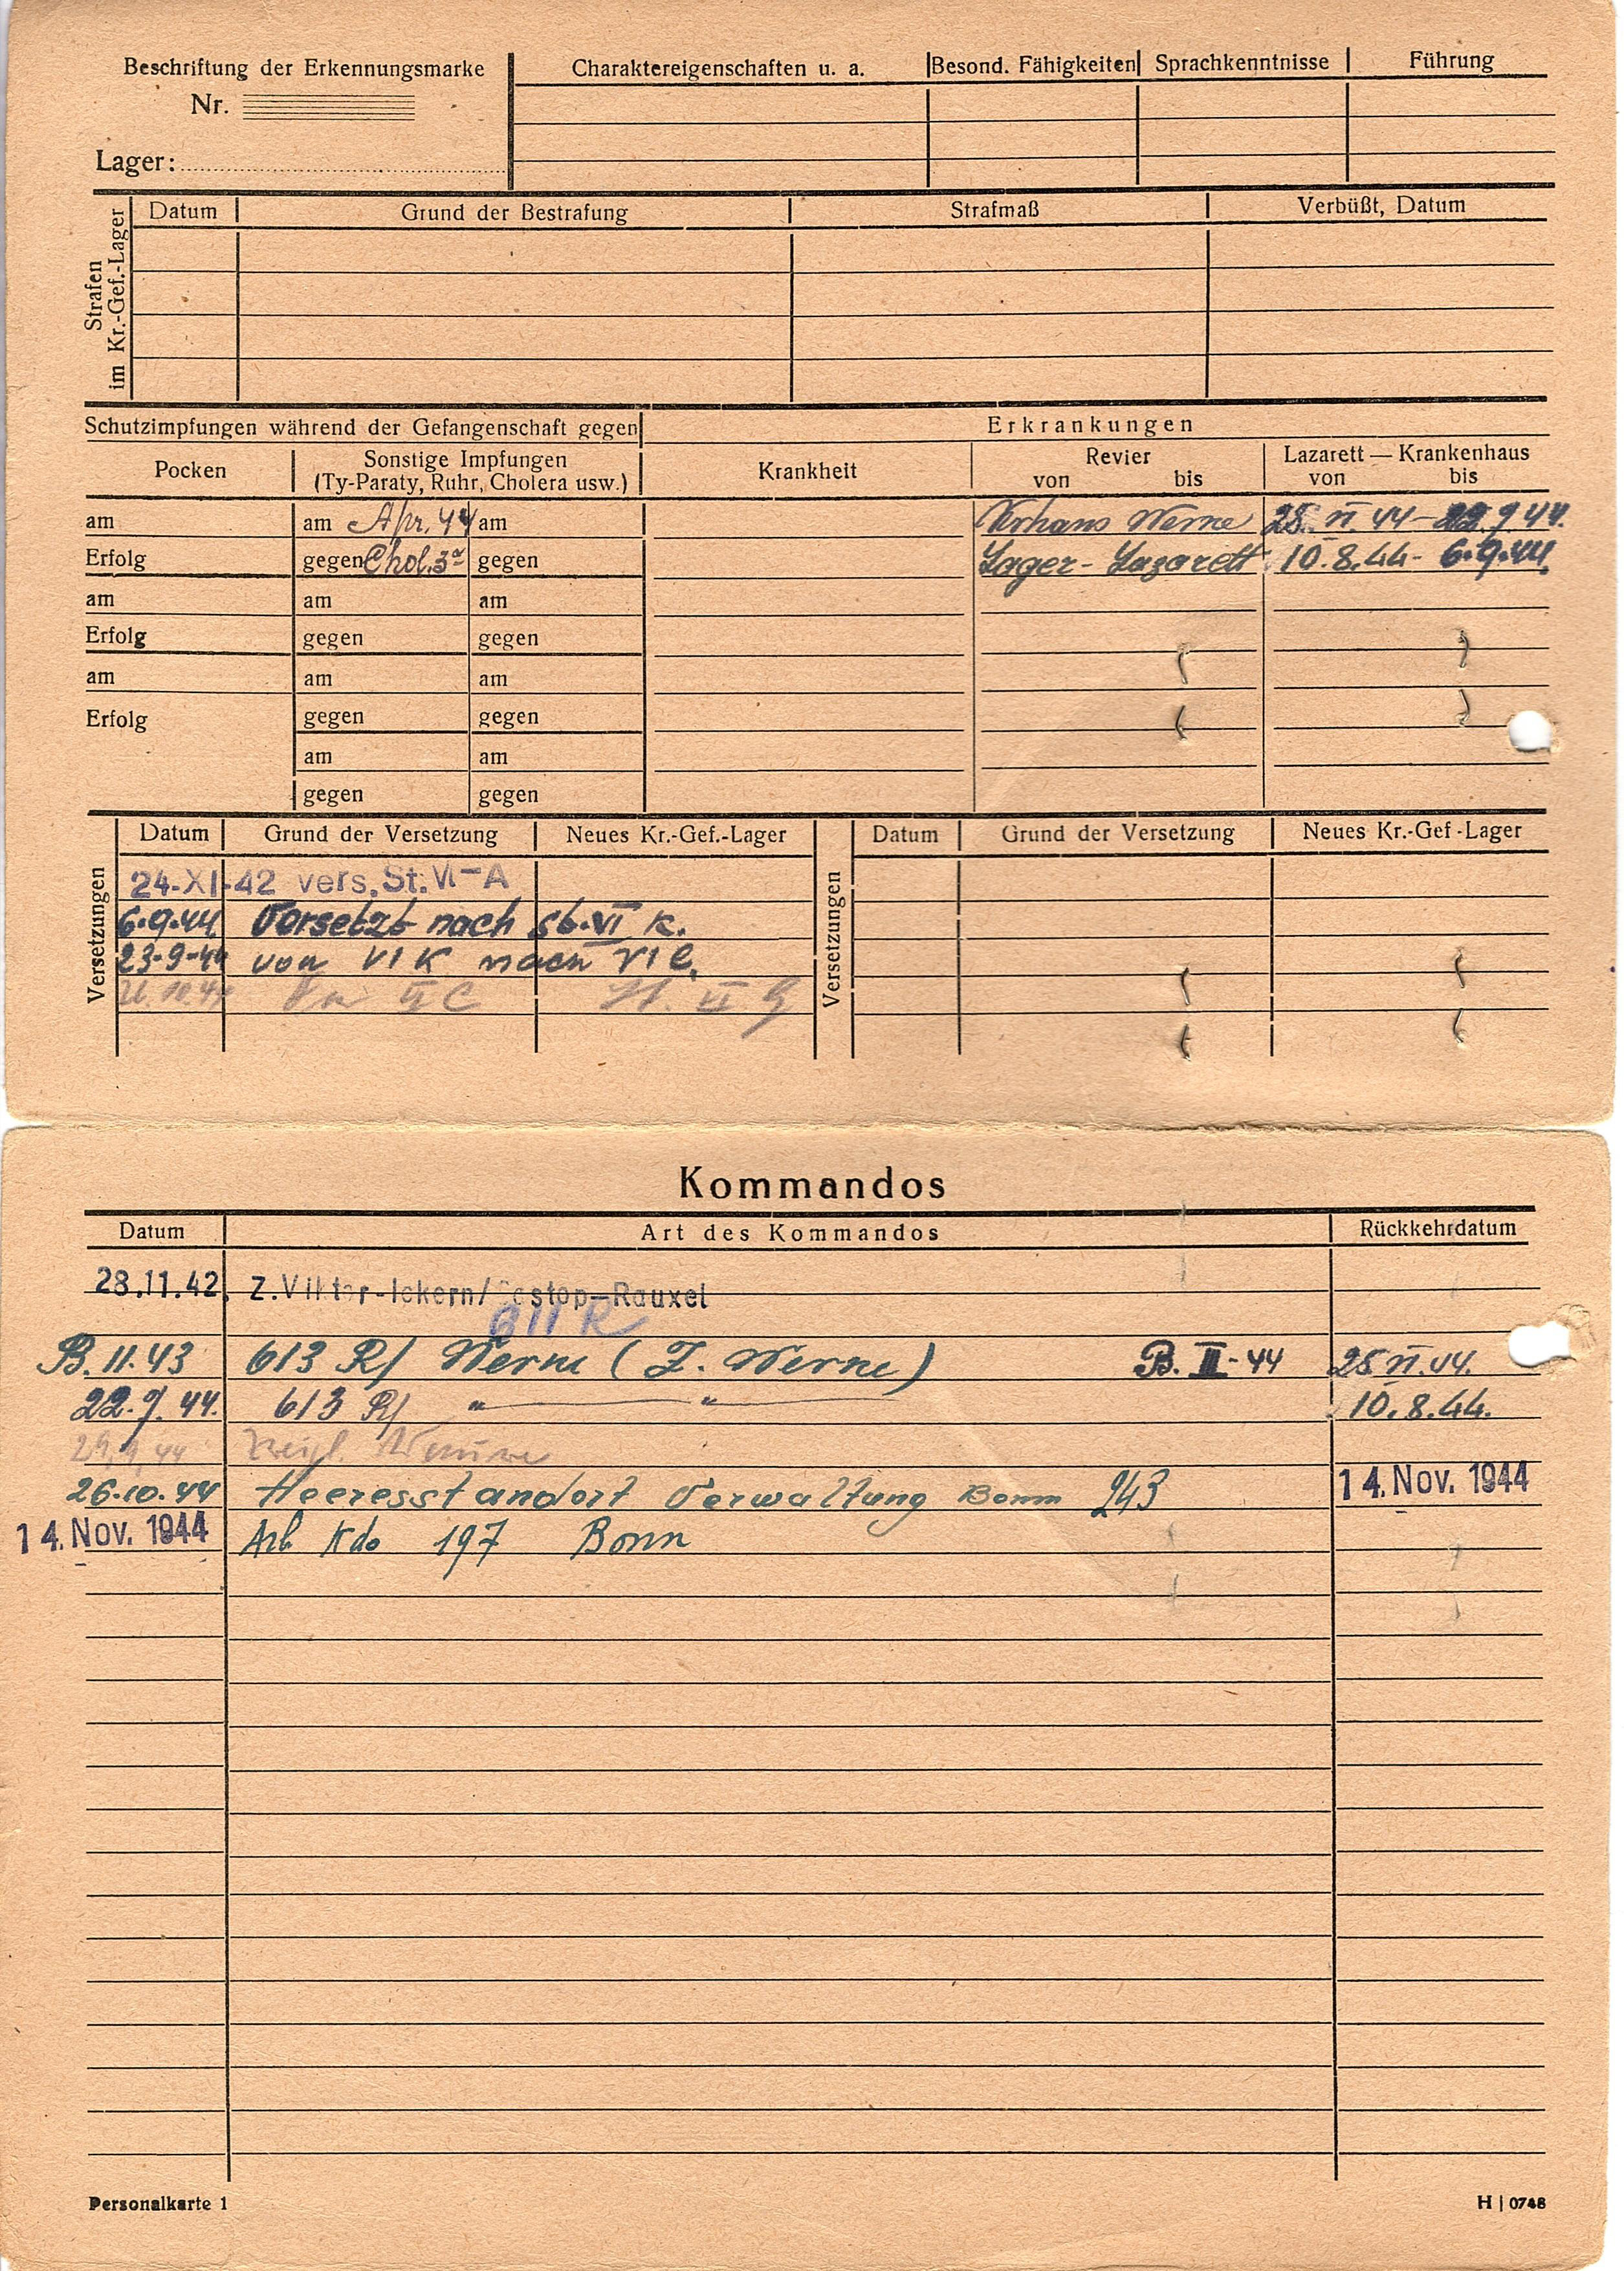 Beschriftung der Erkennungsmarke
Nr.
Lager:
Charaktereigenschaften u. a. Besond. Fähigkeiten Sprachkenntnisse Führung
Strafen im Kr.-Gef.-Lager
Datum Grund der Bestrafung Strafmaß Verbüßt, Datum
Schutzimpfungen während der Gefangenschaft gegen Erkrankungen
Pocken Sonstige Impfungen (Ty-Paraty, Ruhr, Cholera usw.) Krankheit Revier von bis Lazarett — Krankenhaus von bis
am am Apr. 44 am Krhaus Werne 25. VI 44 - 22.7 44.
Erfolg gegen Chol. 3 gegen Lager-Lazarett 10.8.44 - 6.9.44.
am am am
Erfolg gegen gegen
am am am
Erfolg gegen gegen
am am
gegen gegen
Versetzungen
Datum Grund der Versetzung Neues Kr.-Gef.-Lager
24-XI-42 vers. St. VI-A
6.9.44 Versetzt nach St. VI K.
23-9-44 von VI K nach VI C.
VI C St. VI G
Versetzungen
Datum Grund der Versetzung Neues Kr.-Gef-Lager
Kommandos
Datum Art des Kommandos Rückkehrdatum
28.11.42 Z. Viktor-Ickern/Castop-Rauxel
611 R
B. 11. 43 613 R/ Werne (Z. Werne) B. III-44 25 VI. 44.
22. 7. 44. 613 R/ " " 10. 8. 44.
29.9.44
26.10.44 Heeresstandort Verwaltung Bonn 243 14. Nov. 1944
14. Nov. 1944 Arb Kdo 197 Bonn
Personalkarte 1
H | 0748